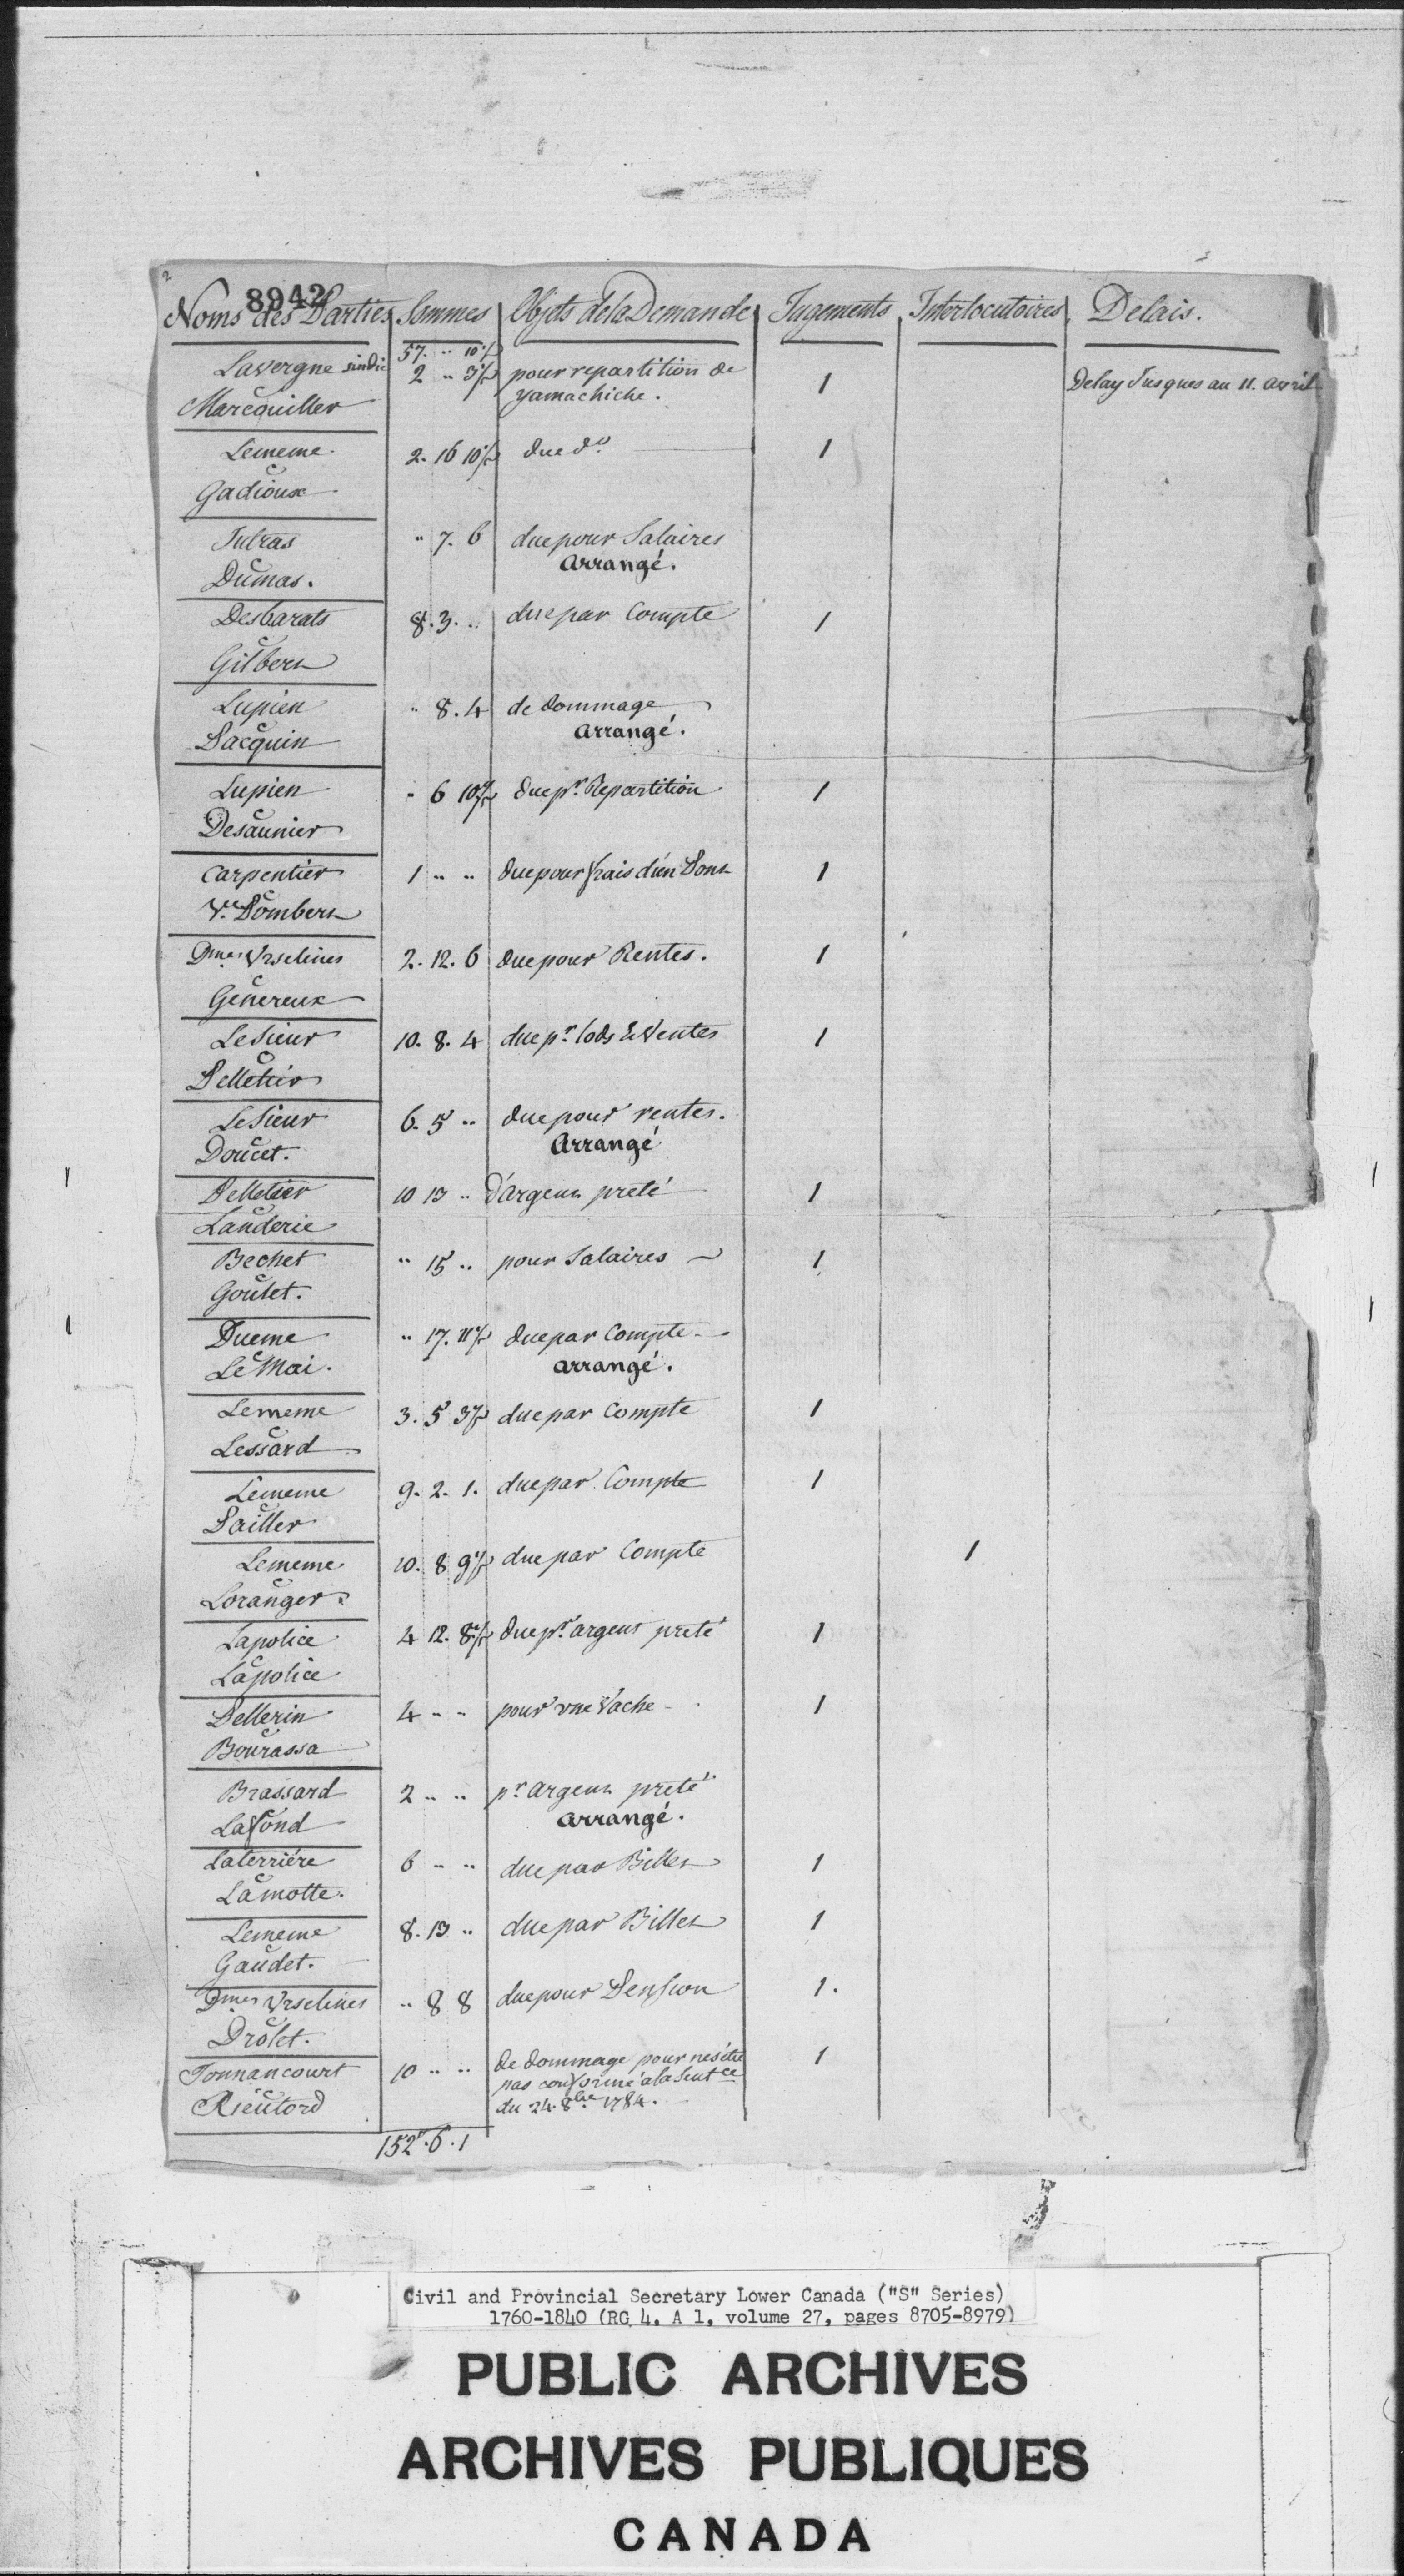 2.
8942
Noms des Parties Sommes Objets de la Demande Jugements Interlocutoires Delais.
57. .. 10½
Lavergne sindic 2 .. 3½ pour repartition de 1 Delay Jusques au 11. avril
C
Marcouiller yamachiche.
Lememe 2. 16 10½ due do. 1
C
Gadioux
Jutras " 7. 6 due pour Salaires
C
Dumas. Arrangé.
Desbarats 8. 3. .. due par Compte 1
C
Gilbert
Lupien " 8. 4 de dommage
C
Pacquin Arrangé.
Lupien " 6 10½ due pr. Repartition 1
C
Desaunier
Carpentier 1 .. .. due pour frais d'un Pont 1
C
Ve. Lombert
Dmes Urselines 2. 12. 6 due pour Rentes. 1
C
Genereux
LeSieur 10. 8. 4 due pr. lods & Ventes 1
C
Pelletier
LeSieur 6. 5 .. due pour rentes.
C
Doucet. Arrangé
Pelletier 10 13 .. d'argent preté 1
C
Landerie
Bechet " 15 .. pour Salaires 1
C
Goulet.
Dueme " 17. 11½ due par Compte
C
LeMai. arrangé.
Lememe 3. 5 3½ due par Compte 1
C
Lessard
Lememe 9. 2. 1. due par Compte 1
C
Sailler
Lememe 10. 8 9½ due par Compte 1
C
Loranger.
Lapolice 4 12. 8½ due pr. argent preté 1
C
Lapolice
Pellerin 4 .. .. pour une Vache 1
C
Bourassa
Brassard 2 .. .. pr argent preté
C
Lafond arrangé.
Laterriére 6 .. .. due par Billet 1
C
Lamotte.
Lememe 8. 13 .. due par Billet 1
C
Gaudet.
Dmes Urselines .. 8 8 due pour Pension 1.
C
Drolet.
Tonnancourt 10 .. .. de dommage pour nes'étre 1
C
pas conformé a la Sentce
Rieutord du 24. 8bre 1784.
152". 6. 1
Civil and Provincial Secretary Lower Canada ("S" Series)
1760-1840 (RG 4, A 1, volume 27, pages 8705-8979)
PUBLIC ARCHIVES
ARCHIVES PUBLIQUES
CANADA